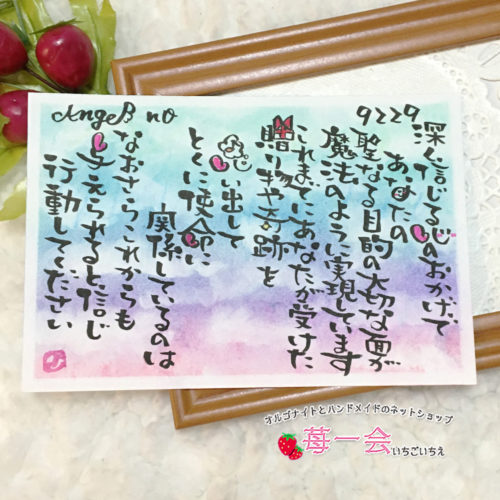 Angel no 9229
深く信じる心のおかげで
あなたの
聖なる目的の大切な面が
魔法のように実現しています
これまでにあなたが受けた
贈り物や奇跡を
思い出して
とくに使命に
関係しているのは
なおさらこれからも
与えられると信じ
行動してください
オルゴナイトとハンドメイドのネットショップ
苺一会 いちごいちえ